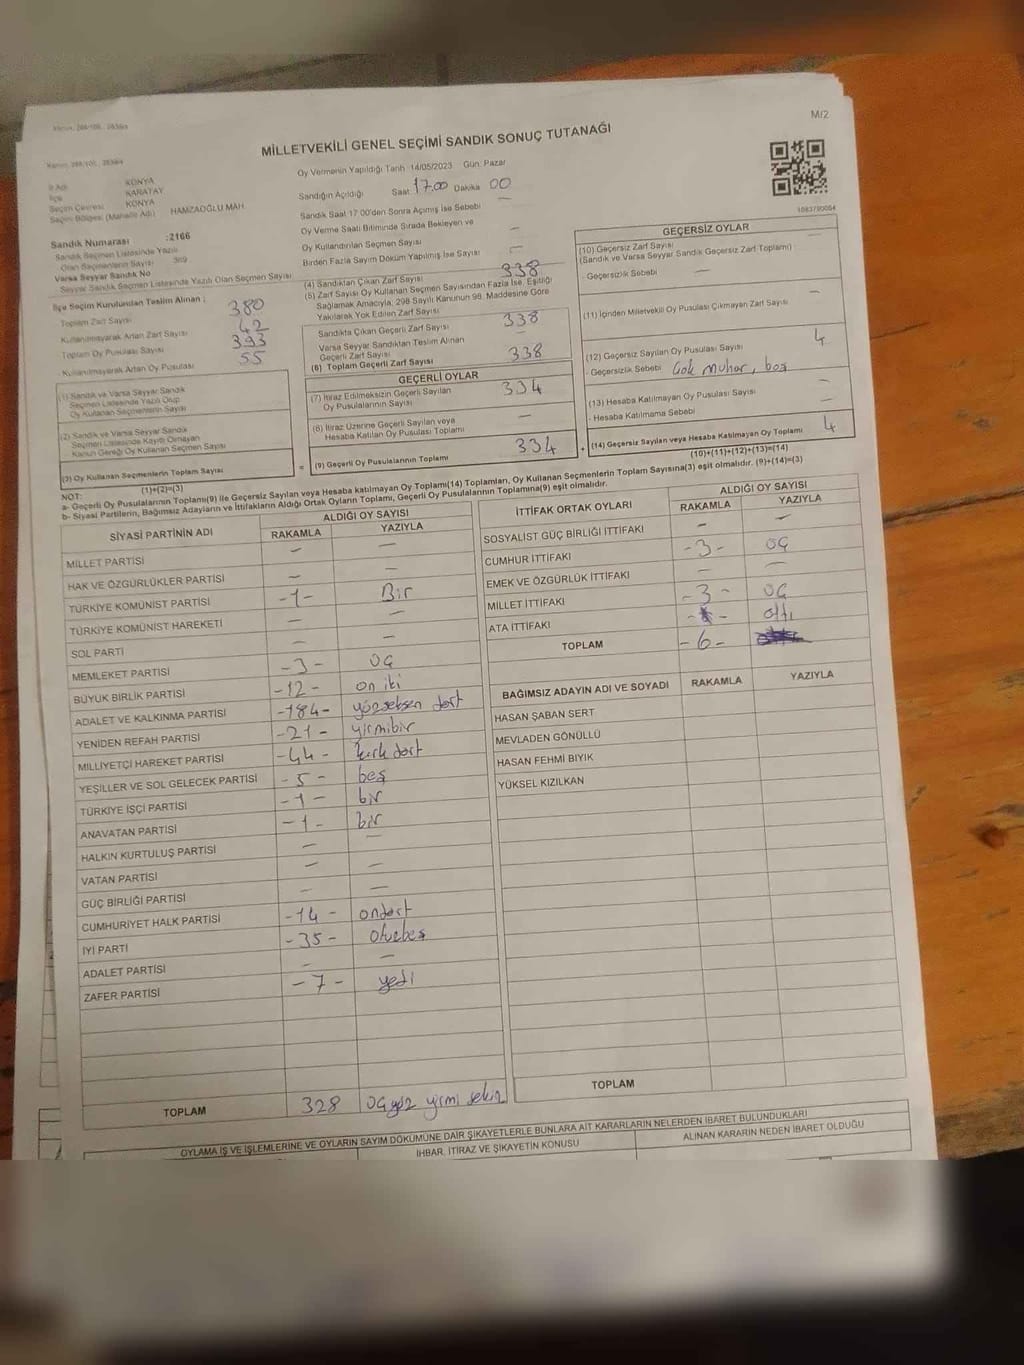 Kanun, 298/105., 2839/4
M/2
MİLLETVEKİLİ GENEL SEÇİMİ SANDIK SONUÇ TUTANAĞI
İl Adı KONYA
İlçe KARATAY
Seçim Çevresi KONYA
Seçim Bölgesi (Mahalle Adı) HAMZAOĞLU MAH.
Sandık Numarası :2166
Sandık Seçmen Listesinde Yazılı
Olan Seçmenlerin Sayısı 369
Varsa Seyyar Sandık No
Seyyar Sandık Seçmen Listesinde Yazılı Olan Seçmen Sayısı
İlçe Seçim Kurulundan Teslim Alınan :
Toplam Zarf Sayısı 380
Kullanılmayarak Artan Zarf Sayısı 42
Toplam Oy Pusulası Sayısı 393
Kullanılmayarak Artan Oy Pusulası 55
(1) Sandık ve Varsa Seyyar Sandık
Seçmen Listesinde Yazılı Olup
Oy Kullanan Seçmenlerin Sayısı
(2) Sandık ve Varsa Seyyar Sandık
Seçmen Listesinde Kayıtlı Olmayan
Kanun Gereği Oy Kullanan Seçmen Sayısı
(3) Oy Kullanan Seçmenlerin Toplam Sayısı
(1)+(2)=(3)
Oy Vermenin Yapıldığı Tarih 14/05/2023 Gün: Pazar
Sandığın Açıldığı Saat 17.00 Dakika 00
Sandık Saat 17:00'den Sonra Açılmış İse Sebebi -
Oy Verme Saati Bitiminde Sırada Bekleyen ve
Oy Kullandırılan Seçmen Sayısı -
Birden Fazla Sayım Döküm Yapılmış İse Sayısı -
(4) Sandıktan Çıkan Zarf Sayısı 338
(5) Zarf Sayısı Oy Kullanan Seçmen Sayısından Fazla İse, Eşitliği
Sağlamak Amacıyla, 298 Sayılı Kanunun 98. Maddesine Göre
Yakılarak Yok Edilen Zarf Sayısı
Sandıkta Çıkan Geçerli Zarf Sayısı 338
Varsa Seyyar Sandıktan Teslim Alınan
Geçerli Zarf Sayısı -
(6) Toplam Geçerli Zarf Sayısı 338
GEÇERLİ OYLAR
(7) İtiraz Edilmeksizin Geçerli Sayılan
Oy Pusulalarının Sayısı 334
(8) İtiraz Üzerine Geçerli Sayılan veya
Hesaba Katılan Oy Pusulası Toplamı -
= (9) Geçerli Oy Pusulalarının Toplamı 334
1083790054
GEÇERSİZ OYLAR
(10) Geçersiz Zarf Sayısı
(Sandık ve Varsa Seyyar Sandık Geçersiz Zarf Toplamı) -
- Geçersizlik Sebebi -
(11) İçinden Milletvekili Oy Pusulası Çıkmayan Zarf Sayısı -
(12) Geçersiz Sayılan Oy Pusulası Sayısı 4
- Geçersizlik Sebebi Çok muhar, boş
(13) Hesaba Katılmayan Oy Pusulası Sayısı -
- Hesaba Katılmama Sebebi -
+ (14) Geçersiz Sayılan veya Hesaba Katılmayan Oy Toplamı 4
(10)+(11)+(12)+(13)=(14)
NOT:
a- Geçerli Oy Pusulalarının Toplamı(9) ile Geçersiz Sayılan veya Hesaba katılmayan Oy Toplamı(14) Toplamları, Oy Kullanan Seçmenlerin Toplam Sayısına(3) eşit olmalıdır. (9)+(14)=(3)
b- Siyasi Partilerin, Bağımsız Adayların ve İttifakların Aldığı Ortak Oyların Toplamı, Geçerli Oy Pusulalarının Toplamına(9) eşit olmalıdır.
SİYASİ PARTİNİN ADI ALDIĞI OY SAYISI
RAKAMLA YAZIYLA
MİLLET PARTİSİ - -
HAK VE ÖZGÜRLÜKLER PARTİSİ - -
TÜRKİYE KOMÜNİST PARTİSİ -1- Bir
TÜRKİYE KOMÜNİST HAREKETİ - -
SOL PARTİ - -
MEMLEKET PARTİSİ -3- üç
BÜYÜK BİRLİK PARTİSİ -12- on iki
ADALET VE KALKINMA PARTİSİ -184- yüzseksen dört
YENİDEN REFAH PARTİSİ -21- yirmibir
MİLLİYETÇİ HAREKET PARTİSİ -44- kırk dört
YEŞİLLER VE SOL GELECEK PARTİSİ -5- beş
TÜRKİYE İŞÇİ PARTİSİ -1- bir
ANAVATAN PARTİSİ -1- bir
HALKIN KURTULUŞ PARTİSİ - -
VATAN PARTİSİ - -
GÜÇ BİRLİĞİ PARTİSİ - -
CUMHURİYET HALK PARTİSİ -14- ondört
İYİ PARTİ -35- otuzbeş
ADALET PARTİSİ - -
ZAFER PARTİSİ -7- yedi
TOPLAM 328 üçyüz yirmi sekiz
İTTİFAK ORTAK OYLARI ALDIĞI OY SAYISI
RAKAMLA YAZIYLA
SOSYALİST GÜÇ BİRLİĞİ İTTİFAKI - -
CUMHUR İTTİFAKI -3- üç
EMEK VE ÖZGÜRLÜK İTTİFAKI - -
MİLLET İTTİFAKI -3- üç
ATA İTTİFAKI altı
TOPLAM -6-
BAĞIMSIZ ADAYIN ADI VE SOYADI RAKAMLA YAZIYLA
HASAN ŞABAN SERT
MEVLADEN GÖNÜLLÜ
HASAN FEHMİ BIYIK
YÜKSEL KIZILKAN
TOPLAM
OYLAMA İŞ VE İŞLEMLERİNE VE OYLARIN SAYIM DÖKÜMÜNE DAİR ŞİKAYETLERLE BUNLARA AİT KARARLARIN NELERDEN İBARET BULUNDUKLARI
İHBAR, İTİRAZ VE ŞİKAYETİN KONUSU ALINAN KARARIN NEDEN İBARET OLDUĞU